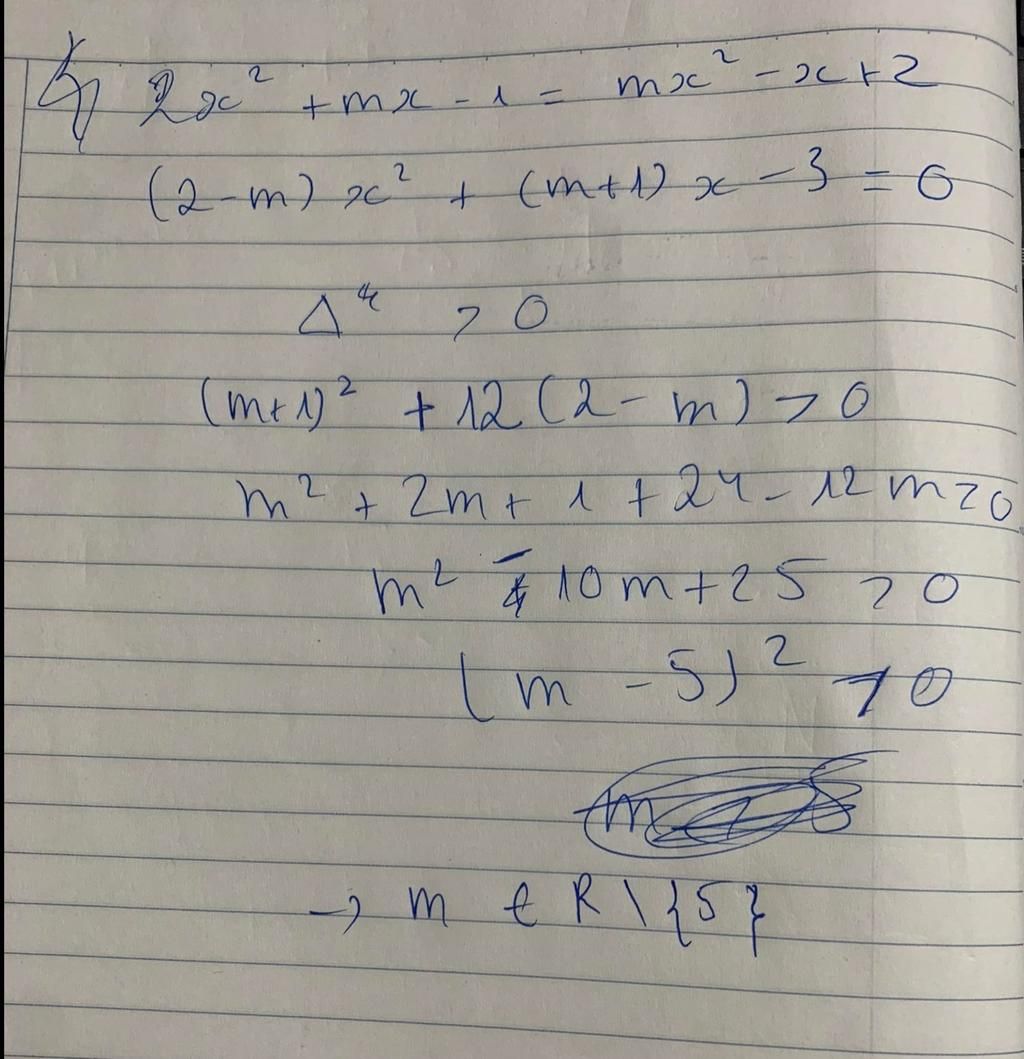 4) 2x² + mx - 1 = mx² - x + 2
(2-m) x² + (m+1) x - 3 = 0
Δ > 0
(m+1)² + 12 (2 - m) > 0
m² + 2m + 1 + 24 - 12m > 0
m² - 10m + 25 > 0
(m - 5)² > 0
→ m ∈ R \ {5}